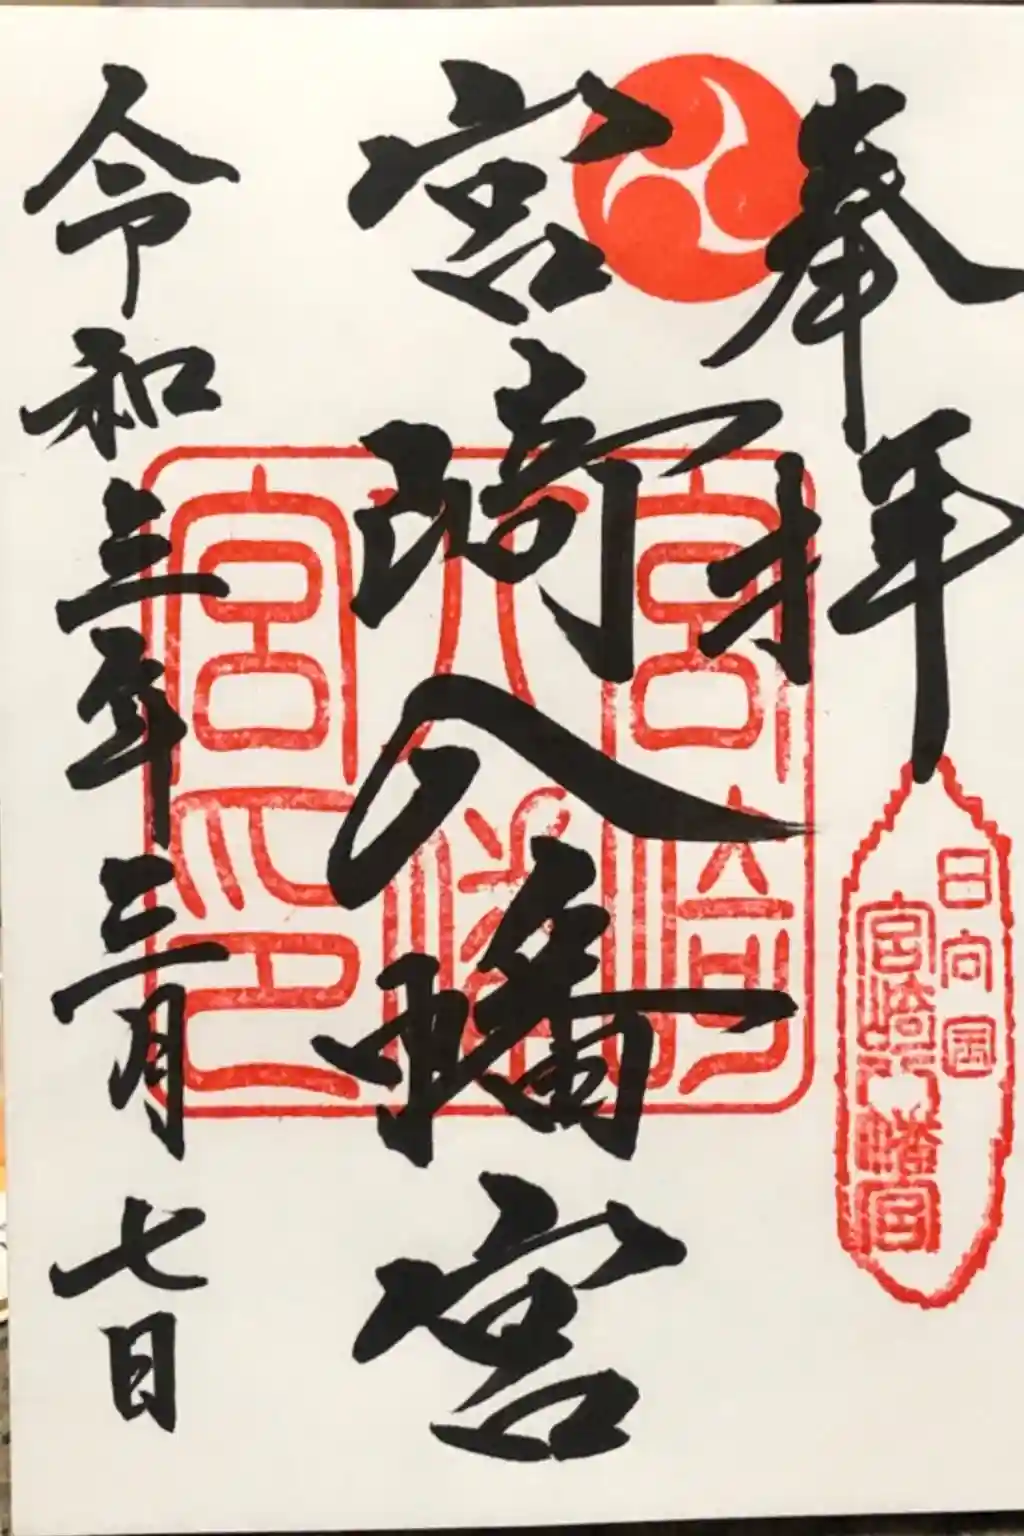 奉拝
日向国
宮崎八幡宮
宮崎八幡宮
宮崎八幡宮印
令和三年三月七日